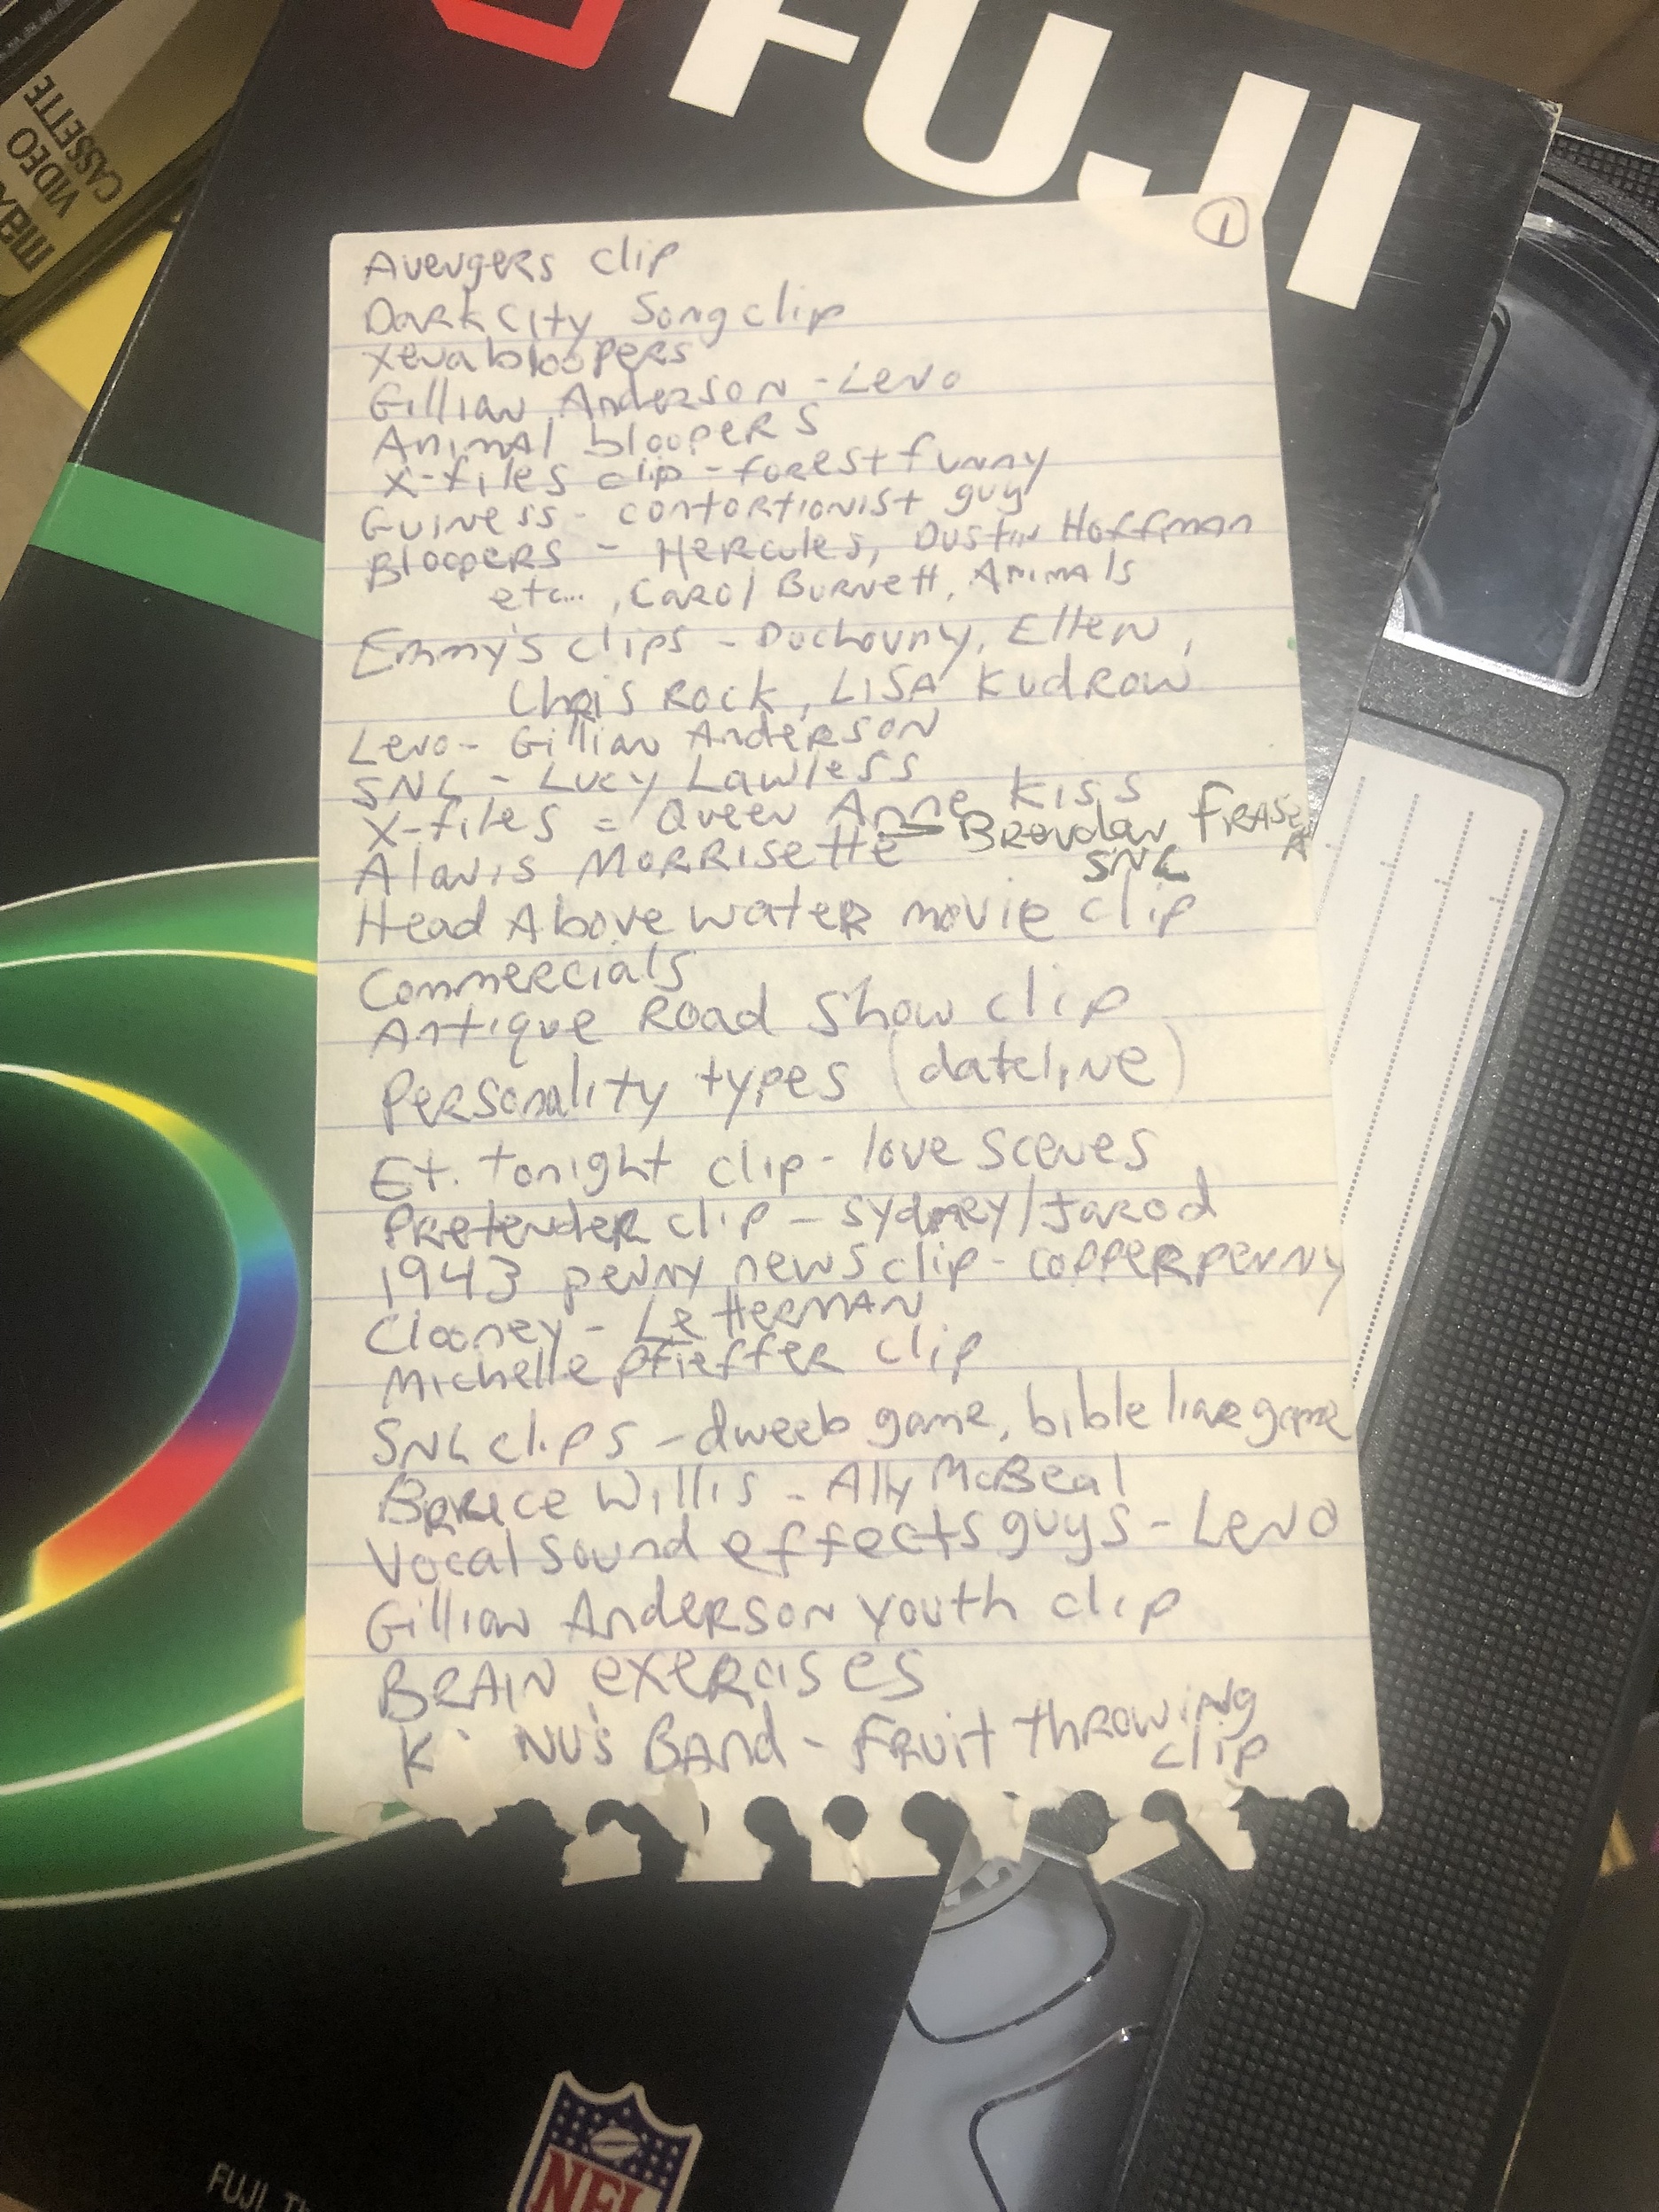 FUJI
maxell
VIDEO
CASSETTE
1
Avengers clip
Dark City Song clip
Xena bloopers
Gillian Anderson - Leno
Animal bloopers
X-files clip - forest funny
Guiness - contortionist guy
Bloopers - Hercules, Dustin Hoffman
etc... , Carol Burnett, Animals
Emmy's clips - Duchovny, Ellen,
Chris Rock, Lisa Kudrow
Leno - Gillian Anderson
SNL - Lucy Lawless
X-files = Queen Anne kiss
Alanis Morrisette - Brendan Fraser
SNL
Head Above water movie clip
Commercials
Antique Road Show clip
Personality types (dateline)
Et. tonight clip - love scenes
Pretender clip - Sydney/Jarod
1943 penny news clip - copper penny
Clooney - Letterman
Michelle Pfieffer clip
SNL clips - dweeb game, bible game
Bruce Willis - Ally McBeal
Vocal sound effects guys - Leno
Gillian Anderson youth clip
BRAIN exercises
Band - Fruit throwing
clip
NFL
FUJI